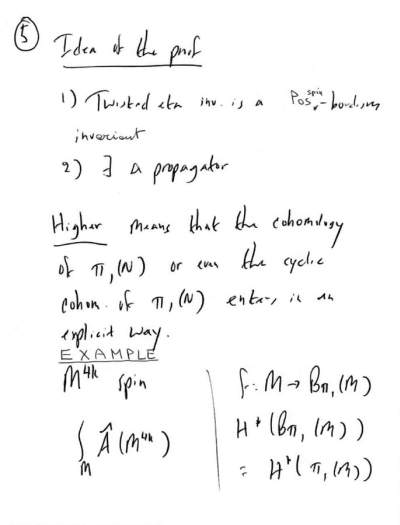 ⑤ Idea of the proof
1) Twisted eta inv. is a Pos^spin_*-bordism
invariant
2) ∃ a propagator
Higher means that the cohomology
of π₁(N) or even the cyclic
cohom. of π₁(N) enters in an
explicit way.
EXAMPLE
M^4k spin
∫_M Â(M^4k)
f: M → Bπ₁(M)
H*(Bπ₁(M))
= H*(π₁(M))